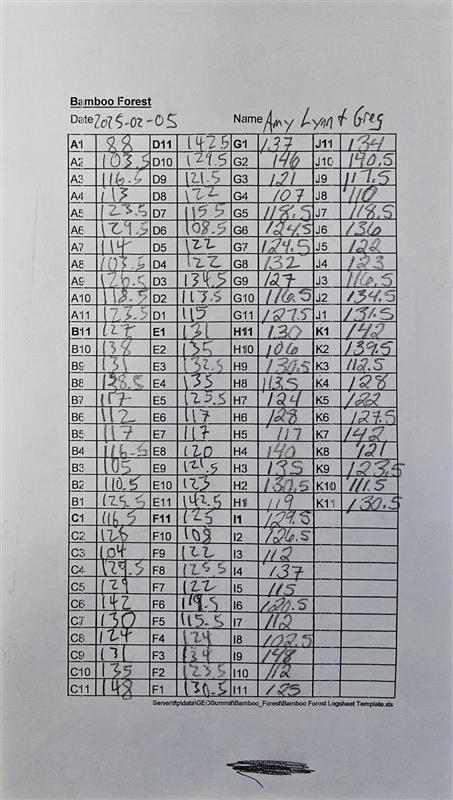 Bamboo Forest
Date 2025-02-05 Name Amy Lynn + Greg
A1 88 D11 142.5 G1 137 J11 134
A2 103.5 D10 129.5 G2 146 J10 140.5
A3 116.5 D9 121.5 G3 121 J9 117.5
A4 113 D8 122 G4 107 J8 110
A5 123.5 D7 115.5 G5 118.5 J7 118.5
A6 129.5 D6 108.5 G6 124.5 J6 136
A7 114 D5 122 G7 124.5 J5 122
A8 103.5 D4 122 G8 132 J4 123
A9 126.5 D3 134.5 G9 127 J3 116.5
A10 118.5 D2 113.5 G10 116.5 J2 134.5
A11 123.5 D1 115 G11 127.5 J1 131.5
B11 127 E1 131 H11 130 K1 142
B10 138 E2 135 H10 106 K2 139.5
B9 131 E3 132.5 H9 130.5 K3 112.5
B8 128.5 E4 135 H8 113.5 K4 128
B7 117 E5 125.5 H7 124 K5 122
B6 112 E6 117 H6 128 K6 127.5
B5 117 E7 117 H5 117 K7 142
B4 116.5 E8 120 H4 140 K8 121
B3 105 E9 121.5 H3 135 K9 123.5
B2 110.5 E10 123 H2 130.5 K10 111.5
B1 125.5 E11 142.5 H1 119 K11 130.5
C1 116.5 F11 125 I1 129.5
C2 126 F10 108 I2 126.5
C3 104 F9 122 I3 112
C4 129.5 F8 125.5 I4 137
C5 129 F7 122 I5 115
C6 142 F6 119.5 I6 120.5
C7 130 F5 115.5 I7 112
C8 124 F4 124 I8 102.5
C9 131 F3 134 I9 148
C10 135 F2 123.5 I10 112
C11 148 F1 130.5 I11 125
Server\ftp\data\GEOSummit\Bamboo_Forest\Bamboo Forest Logsheet Template.xls